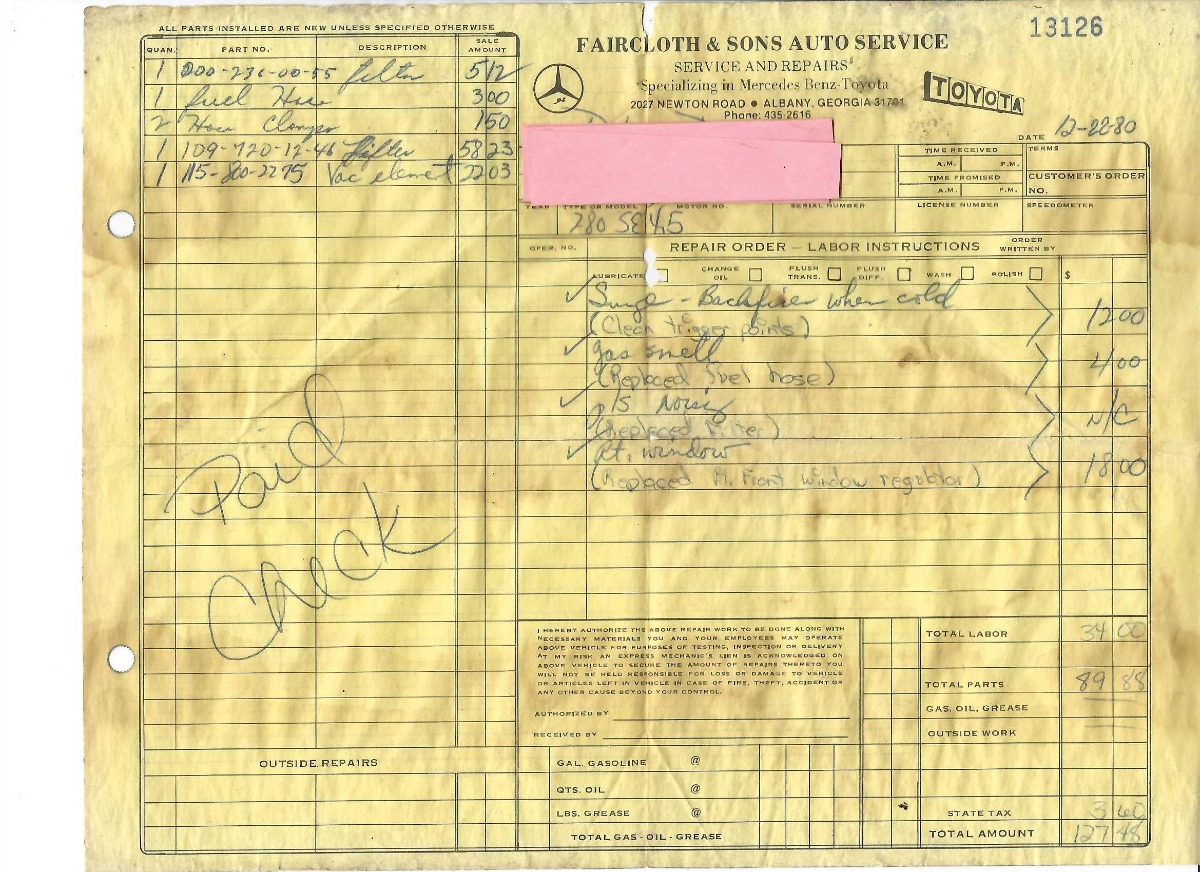 ALL PARTS INSTALLED ARE NEW UNLESS SPECIFIED OTHERWISE
QUAN. PART NO. DESCRIPTION SALE AMOUNT
1 000-236-00-55 filter 5 12
1 fuel Hose 3 00
2 Hose Clamps 1 50
1 109-720-12-46 lifter 58 23
1 115-800-2275 Vac element 22 03
Paid
Check
OUTSIDE REPAIRS
13126
FAIRCLOTH & SONS AUTO SERVICE
SERVICE AND REPAIRS
Specializing in Mercedes Benz-Toyota
2027 NEWTON ROAD ● ALBANY, GEORGIA 31701
Phone: 435-2616
TOYOTA
DATE 12-22-80
TIME RECEIVED TERMS
A.M. P.M.
TIME PROMISED CUSTOMER'S ORDER NO.
A.M. P.M.
YEAR TYPE OR MODEL MOTOR NO. SERIAL NUMBER LICENSE NUMBER SPEEDOMETER
280 SE 4.5
OPER. NO. REPAIR ORDER — LABOR INSTRUCTIONS ORDER WRITTEN BY
LUBRICATE CHANGE OIL FLUSH TRANS. FLUSH DIFF. WASH POLISH $
✓ Surge - Backfires when cold
(Clean trigger points) 12 00
✓ gas smell
(Replaced fuel hose) 4 00
✓ P/S Noisy
(Replaced filter) N/C
✓ Rt. window
(Replaced Rt. Front window regulator) 18 00
I HEREBY AUTHORIZE THE ABOVE REPAIR WORK TO BE DONE ALONG WITH
NECESSARY MATERIALS YOU AND YOUR EMPLOYEES MAY OPERATE
ABOVE VEHICLE FOR PURPOSES OF TESTING, INSPECTION OR DELIVERY
AT MY RISK AN EXPRESS MECHANIC'S LIEN IS ACKNOWLEDGED ON
ABOVE VEHICLE TO SECURE THE AMOUNT OF REPAIRS THERETO YOU
WILL NOT BE HELD RESPONSIBLE FOR LOSS OR DAMAGE TO VEHICLE
OR ARTICLES LEFT IN VEHICLE IN CASE OF FIRE, THEFT, ACCIDENT OR
ANY OTHER CAUSE BEYOND YOUR CONTROL.
AUTHORIZED BY
RECEIVED BY
GAL. GASOLINE @
QTS. OIL @
LBS. GREASE @
TOTAL GAS - OIL - GREASE
TOTAL LABOR 34 00
TOTAL PARTS 89 88
GAS, OIL, GREASE
OUTSIDE WORK
STATE TAX 3 60
TOTAL AMOUNT 127 48